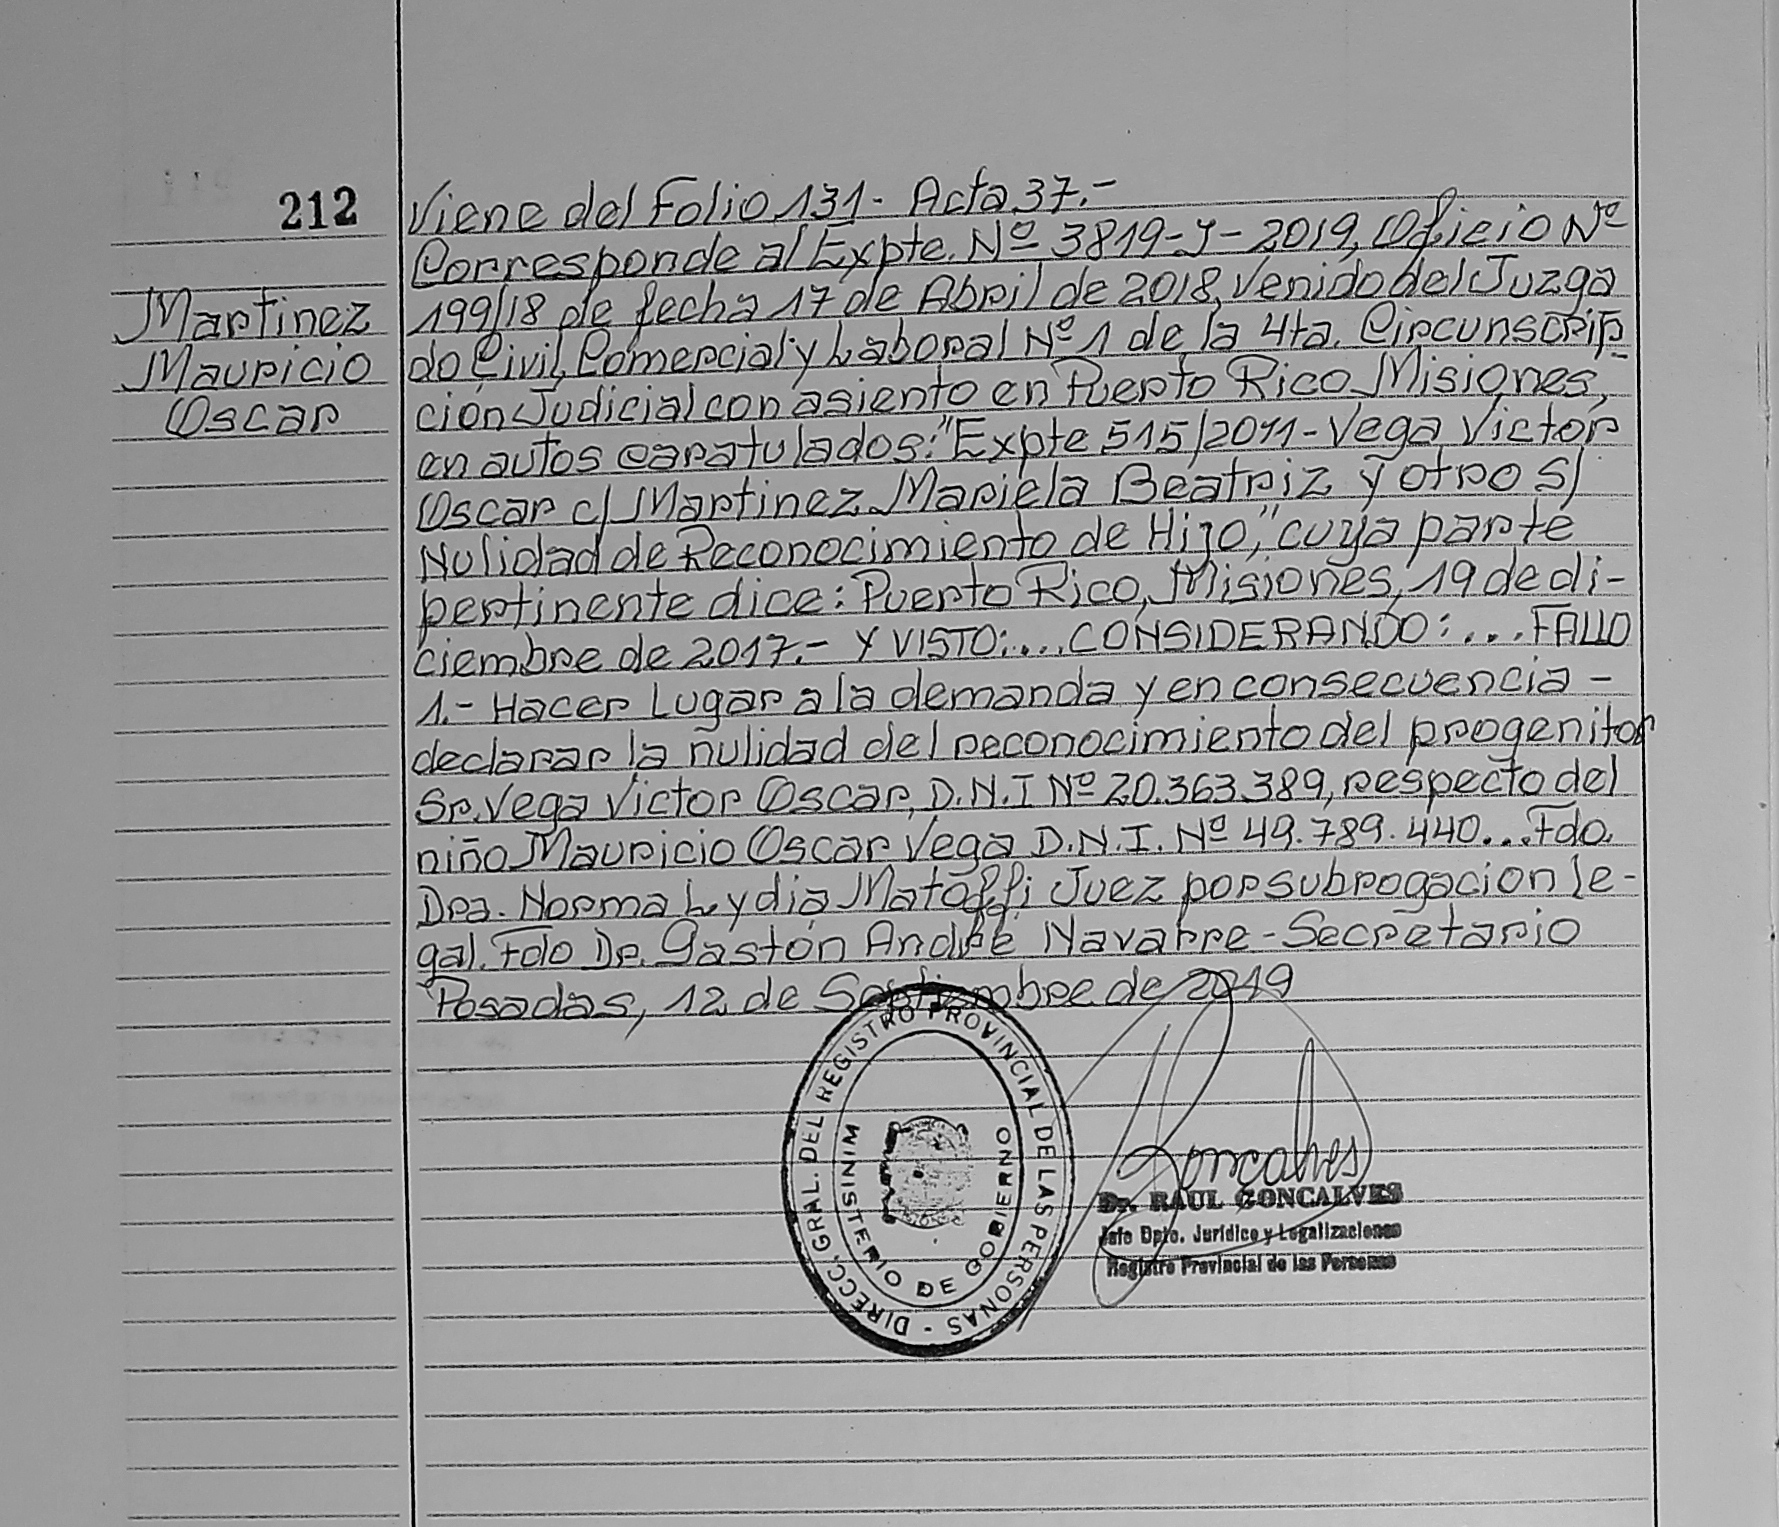 212
Martinez
Mauricio
Oscar
Viene del Folio 131.- Acta 37.-
Corresponde al Expte. Nº 3819-J-2019, Oficio Nº
199/18 de fecha 17 de Abril de 2018, Venido del Juzga
do Civil, Comercial y Laboral Nº 1 de la 4ta. Circunscrip
ción Judicial con asiento en Puerto Rico Misiones,
en autos caratulados: "Expte 515/2011 - Vega, Victor
Oscar c/ Martinez Mariela Beatriz y otro S/
Nulidad de Reconocimiento de Hijo," cuya parte
pertinente dice: Puerto Rico, Misiones, 19 de di-
ciembre de 2017.- Y VISTO:.... CONSIDERANDO:... FALLO
1.- Hacer Lugar a la demanda y en consecuencia -
declarar la nulidad del reconocimiento del progenitor
Sr. Vega Victor Oscar, D.N.I Nº 20.363.389, respecto del
niño Mauricio Oscar Vega D.N.I. Nº 49.789.440... Fdo.
Dra. Norma Lydia Matoffi Juez por subrogacion le-
gal. Fdo Dr. Gastón André Navarre - Secretario
Posadas, 12 de Septiembre de 2019
DIRECC. GRAL. DEL REGISTRO PROVINCIAL DE LAS PERSONAS -
MINISTERIO DE GOBIERNO
Goncalves
Dr. RAUL GONCALVES
Jefe Dpto. Jurídico y Legalizaciones
Registro Provincial de las Personas